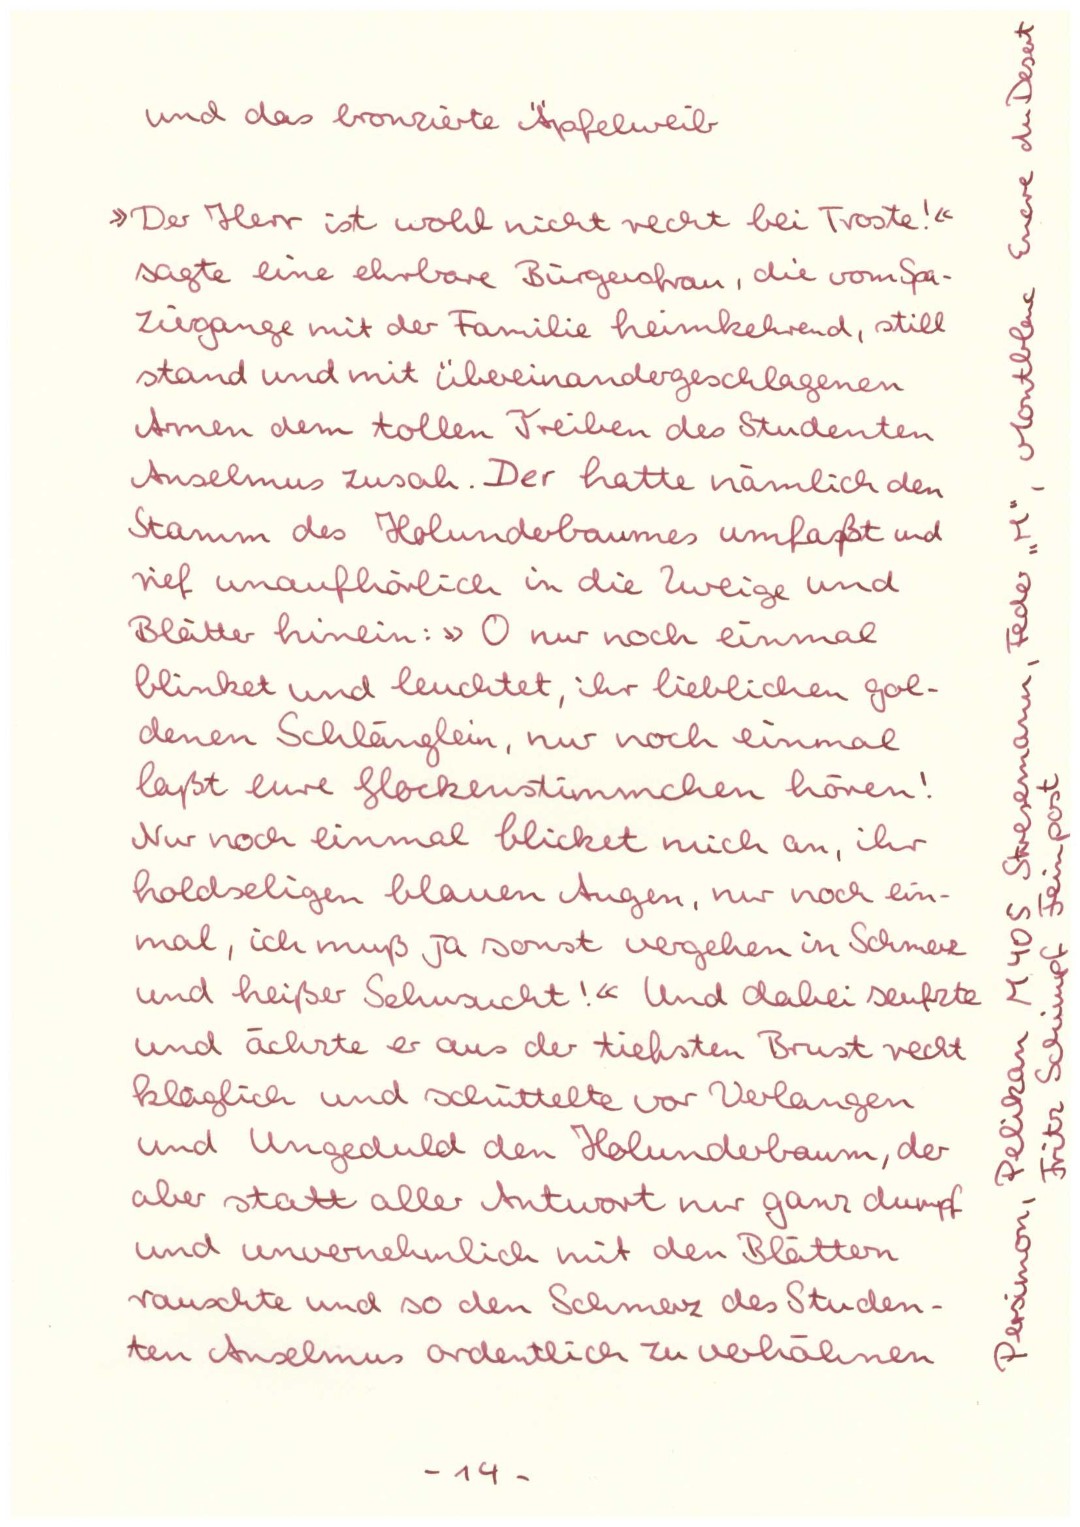 und das bronzierte Äpfelweib
»Der Herr ist wohl nicht recht bei Troste!«
sagte eine ehrbare Bürgersfrau, die vom Spa-
ziergange mit der Familie heimkehrend, still
stand und mit übereinandergeschlagenen
Armen dem tollen Treiben des Studenten
Anselmus zusah. Der hatte nämlich den
Stamm des Holunderbaumes umfaßt und
rief unaufhörlich in die Zweige und
Blätter hinein: » O nur noch einmal
blinket und leuchtet, ihr lieblichen gol-
denen Schlänglein, nur noch einmal
laßt eure Glockenstimmchen hören!
Nur noch einmal blicket mich an, ihr
holdseligen blauen Augen, nur noch ein-
mal, ich muß ja sonst vergehen in Schmerz
und heißer Sehnsucht!« Und dabei seufzte
und ächzte er aus der tiefsten Brust recht
kläglich und schüttelte vor Verlangen
und Ungeduld den Holunderbaum, der
aber statt aller Antwort nur ganz dumpf
und unvernehmlich mit den Blättern
rauschte und so den Schmerz des Studen-
ten Anselmus ordentlich zu verhöhnen
- 14 -
Persimon, Pelikan M 405 Stresemann, Feder „M", Montblanc Encre du Desert
Fritz Schimpf Feinpost